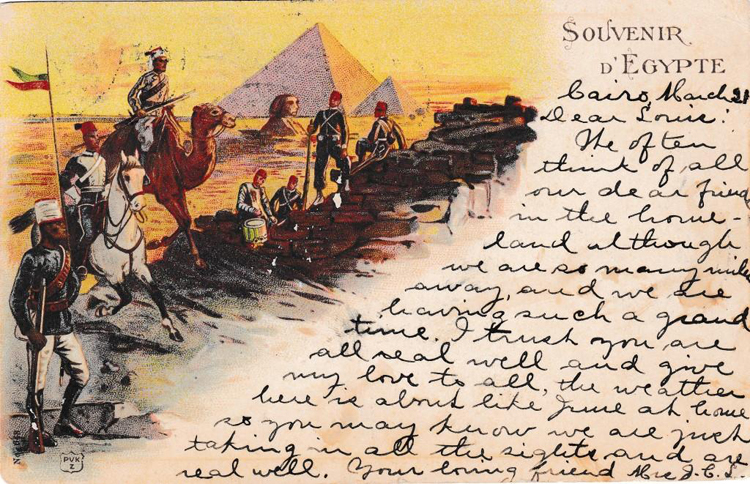 SOUVENIR
D'EGYPTE
Cairo March 21
Dear
We often
think of all
our dear friends
in the home-
land although
we are so many miles
away, and we are
having such a grand
time. I trust you are
all real well and give
my love to all, the weather
here is about like June at home
so you may know we are just
taking in all the sights and are
real well. Your loving friend Mrs J. C. L.
PVK
Z